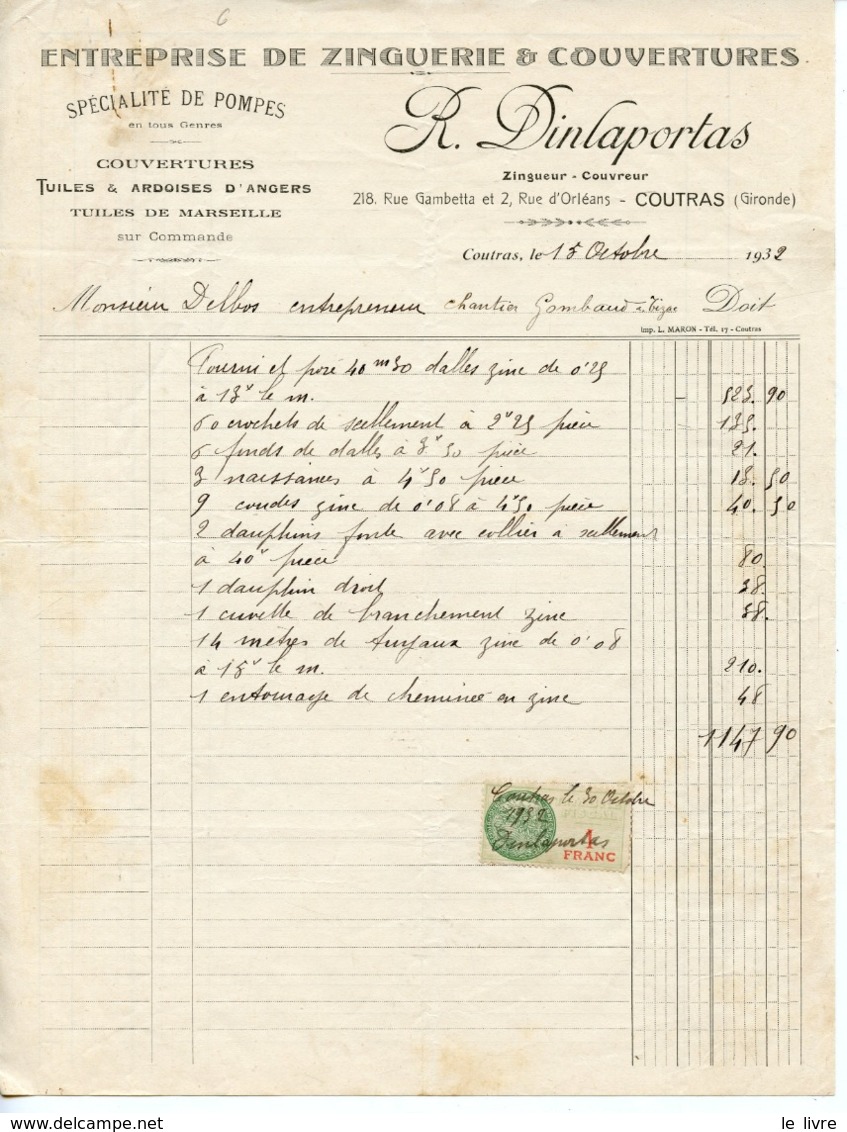 6
ENTREPRISE DE ZINGUERIE & COUVERTURES
SPÉCIALITÉ DE POMPES
en tous Genres
COUVERTURES
TUILES & ARDOISES D'ANGERS
TUILES DE MARSEILLE
sur Commande
R. Dinlaportas
Zingueur - Couvreur
218. Rue Gambetta et 2, Rue d'Orléans - COUTRAS (Gironde)
Coutras, le 15 Octobre 1932
Monsieur Delbos entrepreneur chantier Gombaud à Tizac Doit
Imp. L. MARON - Tél. 17 - Coutras
Fourni et posé 40 m 30 dalles zinc de 0'25
à 13 f le m. 523. 90
60 crochets de scellement à 2 f 25 pièce 135.
6 fonds de dalles à 3 f 50 pièce 21.
3 naissances à 4 f 50 pièce 13. 50
9 coudes zinc de 0'08 à 4 f 50 pièce 40. 50
2 dauphins fonte avec collier à scellement
à 40 f pièce 80.
1 dauphin droit 38.
1 cuvette de branchement zinc 38.
14 mètres de tuyaux zinc de 0'08
à 15 f le m. 210.
1 entourage de cheminée en zinc 48
1147 90
Coutras le 30 Octobre
1932
Dinlaportas
1
FRANC
DELCAMPE.NET
le livre